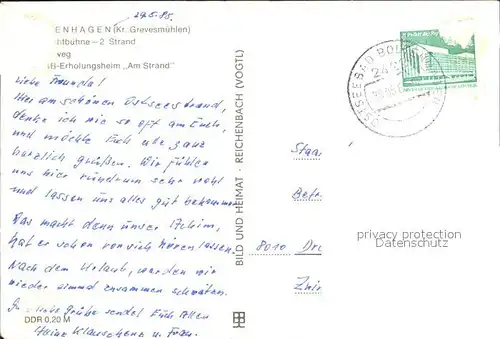 29.5.85
ENHAGEN (Kr. Grevesmühlen)
htbühne — 2 Strand
weg
B-Erholungsheim „Am Strand"
Liebe Freunde!
Hier am schönen Ostseestrand,
denke ich nun so oft an Euch,
und möchte Euch ganz
herzlich grüßen. Wir fühlen
uns hier rundrum sehr wohl
und lassen uns alles gut bekommen
Was macht denn unser Achim,
hat er schon von sich hören lassen.
Nach dem Urlaub, werden wir
wieder einmal zusammen schwätzen.
Grüße sendet Euch allen
Heinz u. Frau.
DDR 0,20 M
BILD UND HEIMAT · REICHENBACH (VOGTL)
OSTSEEBAD BOL
Staa
Betr
8010 Dre
Zin
privacy protection
Datenschutz